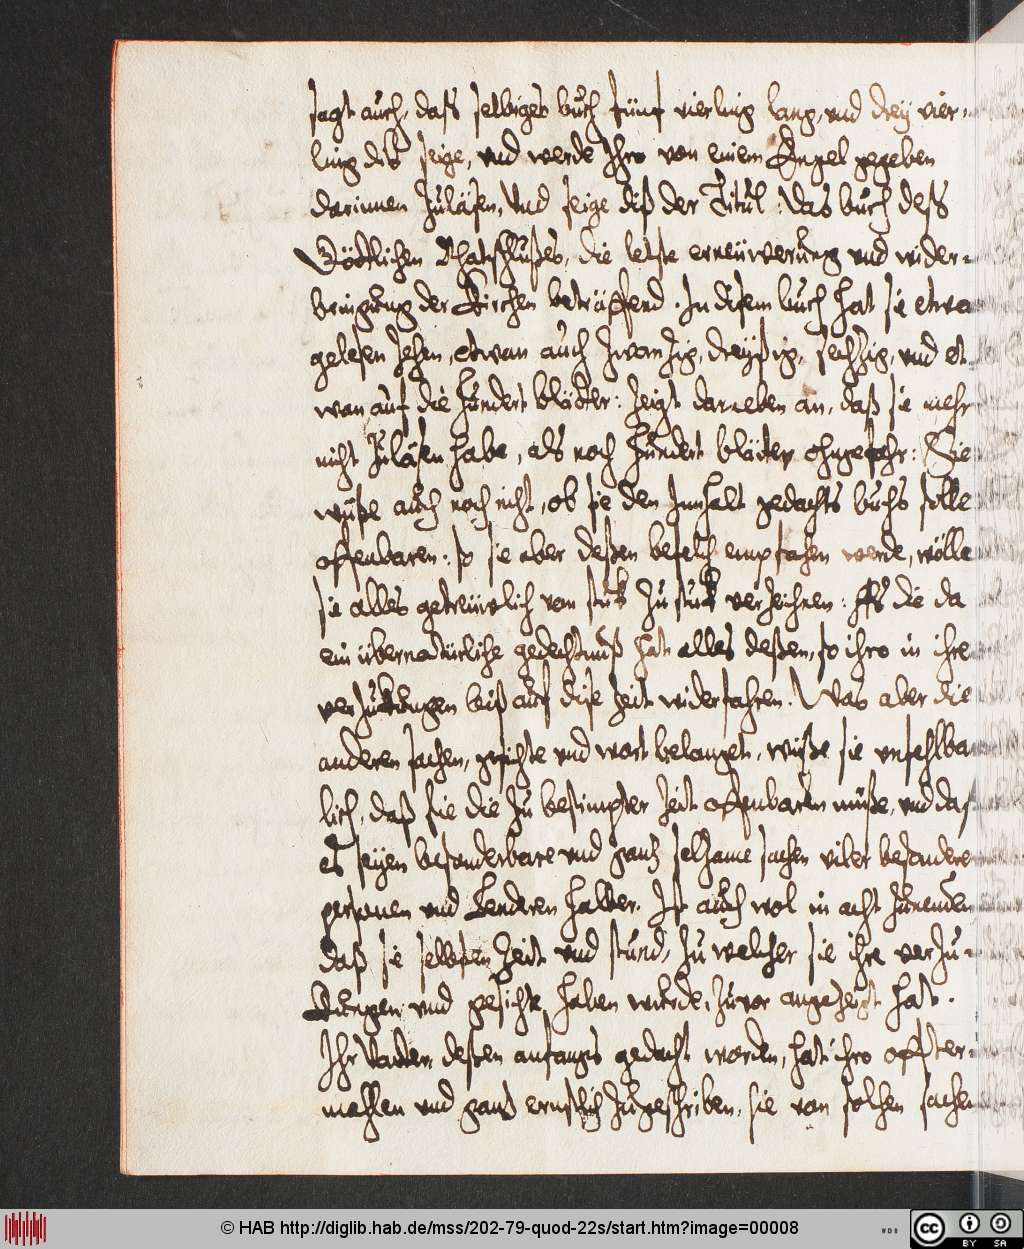 sagt auch, daß selbiges buch fünf vierling lang, und drey vier-
ling dik seige, und werde Ihro von einem Engel gegeben
darinnen zuläsen, Und seige diß der Titul: das buch deß
Göttlichen Rhatschlußes, die letste erneüwerung und wider-
bringung der Kirchen beträffend. In disem buch hat sie etwa
gelesen zehen, etwan auch zwanzig, dreyßig, sechzig, und et-
wan auf die hundert blätter: zeigt darneben an, daß sie mehr
nicht zuläsen habe, als noch hundert bläter ohngefehr: Sie
wüße auch noch nicht, ob sie den Innhalt gedachts buchs solle
offenbaren: so sie aber deßen befelch empfachen werde, wölle
sie alles getreüwlich von stuk zu stuk verzeichnen: als die da
ein übernatürliche gedechtnuß hat alles deßen, so ihro in ihre
verzukungen biß auf dise zeit widerfahren. Was aber die
anderen sachen, gesichte und wort belanget, wüße sie unfehlbar
lich, daß sie die zu bestimpter zeit offenbaren müße, und daß
es seyen besonderbare und gantz selzame sachen viler besondere
personen und Länderen halber. Ist auch wol in acht zunemen
daß sie selbsten zeit und stund, zu welcher sie ihre verzu-
kungen und gesichte haben wurde, zuvor angezeigt hat.
Ihr Vatter, deßen anfangs gedacht worden, hat ihro offter-
mahlen und ganz ernstlich zugeschriben, sie von solchen sachen
© HAB http://diglib.hab.de/mss/202-79-quod-22s/start.htm?image=00008
WDB
cc BY SA